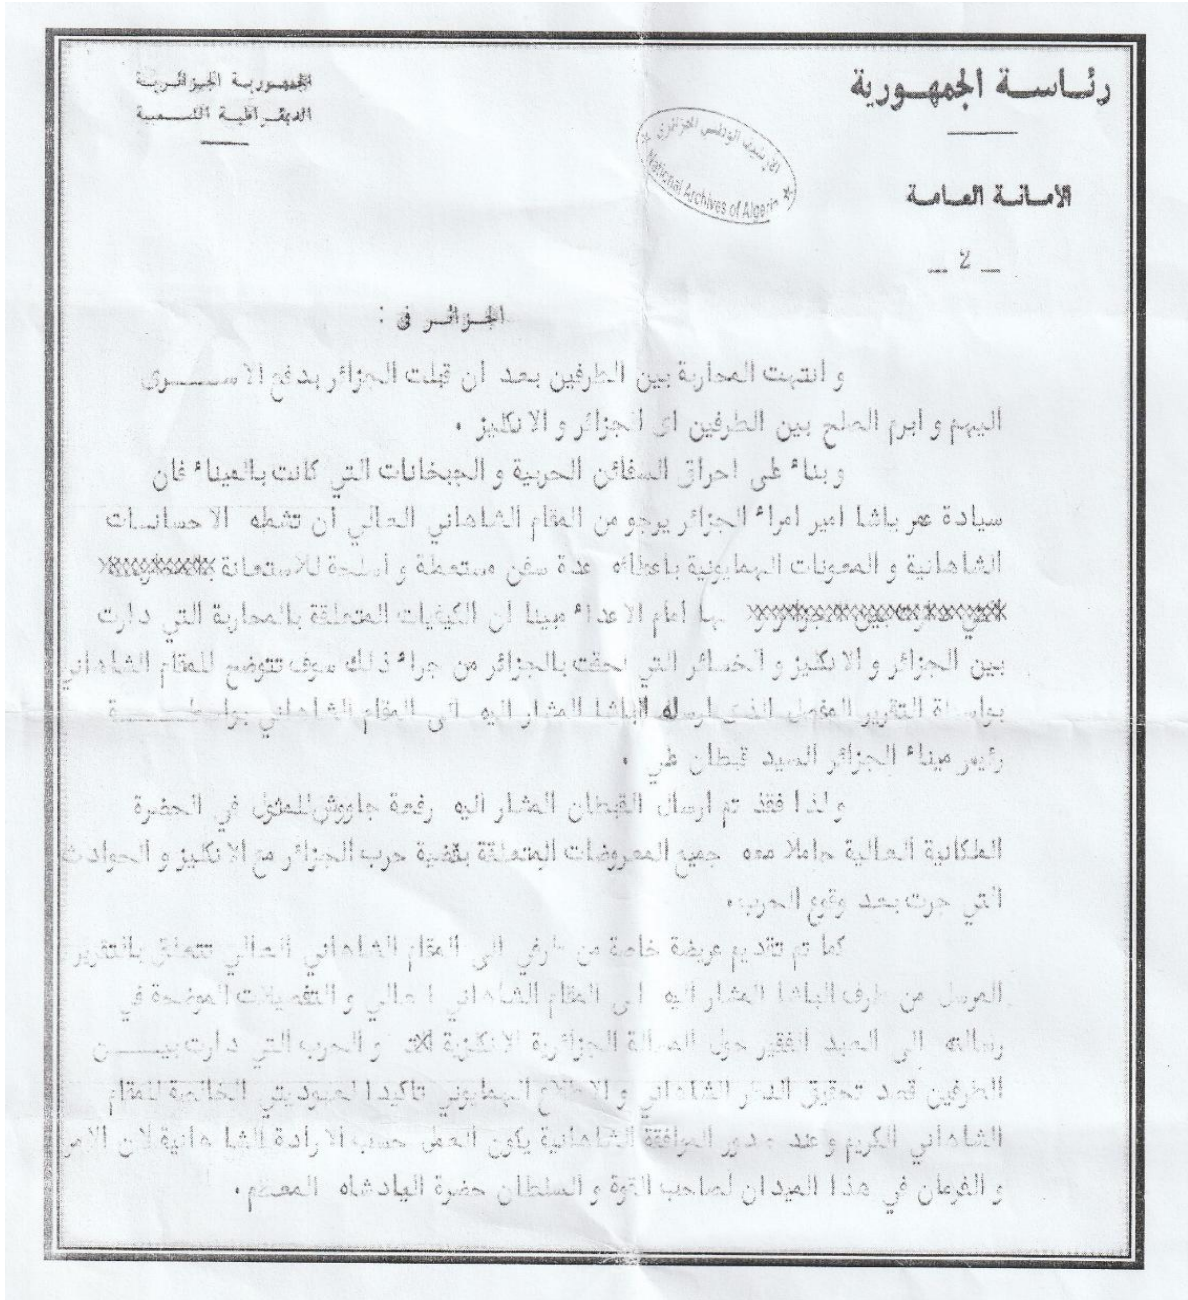 رئاسة الجمهورية
الجمهورية الجزائرية
الديمقراطية الشعبية
الأرشيف الوطني الجزائري
National Archives of Algeria
الامانة العامة
_ 2 _
الجزائر في :
و انتهت المحاربة بين الطرفين بعد ان قبلت الجزائر بدفع الاسرى
اليهم و ابرم الصلح بين الطرفين اى الجزائر و الانكليز .
و بناء على احراق السفائن الحربية و الجبخانات التي كانت بالميناء فان
سيادة عمر باشا امير امراء الجزائر يرجو من المقام الشاهاني العالي أن تشمله الاحسانات
الشاهانية و المعونات الهمايونية باعطائه عدة سفن مستعملة و أسلحة للاستعانة
بها امام الاعداء مبينا ان الكيفيات المتعلقة بالمحاربة التي دارت
بين الجزائر و الانكليز و الخسائر التي لحقت بالجزائر من جراء ذلك سوف تتوضح للمقام الشاهاني
بواسطة التقرير المفصل الذى ارسله الباشا المشار اليه الى المقام الشاهاني بواسطة
رئيس ميناء الجزائر السيد قبطان علي .
و لذا فقد تم ارسال القبطان المشار اليه رفقة جاووش للمثول في الحضرة
العالية حاملا معه جميع المعروضات المتعلقة بقضية حرب الجزائر مع الانكليز و الحوادث
التي جرت بعد وقوع الحرب.
كما تم تقديم عريضة خاصة من طرفي الى المقام الشاهاني العالي تتعلق بالتقرير
المرسل من طرف الباشا المشار اليه الى المقام الشاهاني العالي و التفصيلات الموضحة في
رسالته الى العبد الفقير حول المسألة الجزائرية الانكلزية و الحرب التي دارت بين
الطرفين قصد تحقيق النظر الشاهاني و الاطلاع الهمايوني تاكيدا لعبوديتي الخالصة للمقام
الشاهاني الكريم و عند صدور الموافقة الشاهانية يكون العمل حسب الارادة الشاهانية لان الامر
و الفرمان في هذا الميدان لصاحب القوة و السلطان حضرة البادشاه المعظم.